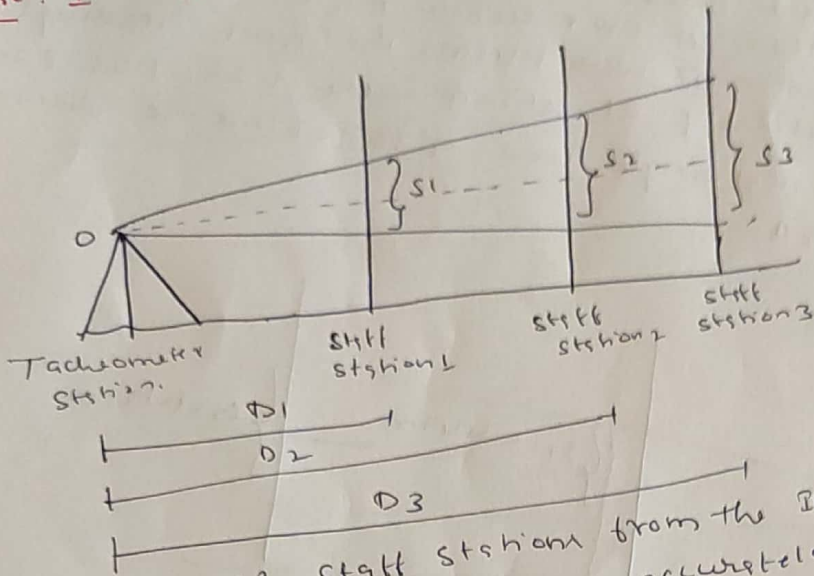 O
S1
S2
S3
Tacheometer
Station.
Staff
station 1
Staff
station 2
Staff
station 3
D1
D2
D3
staff stations from the